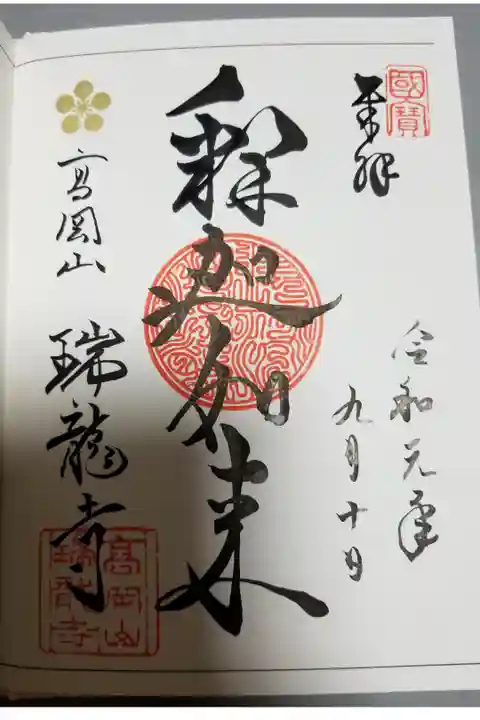 國寶
奉拝
令和元年
九月十日
釈迦如来
高岡山
瑞龍寺
高岡山
瑞龍寺